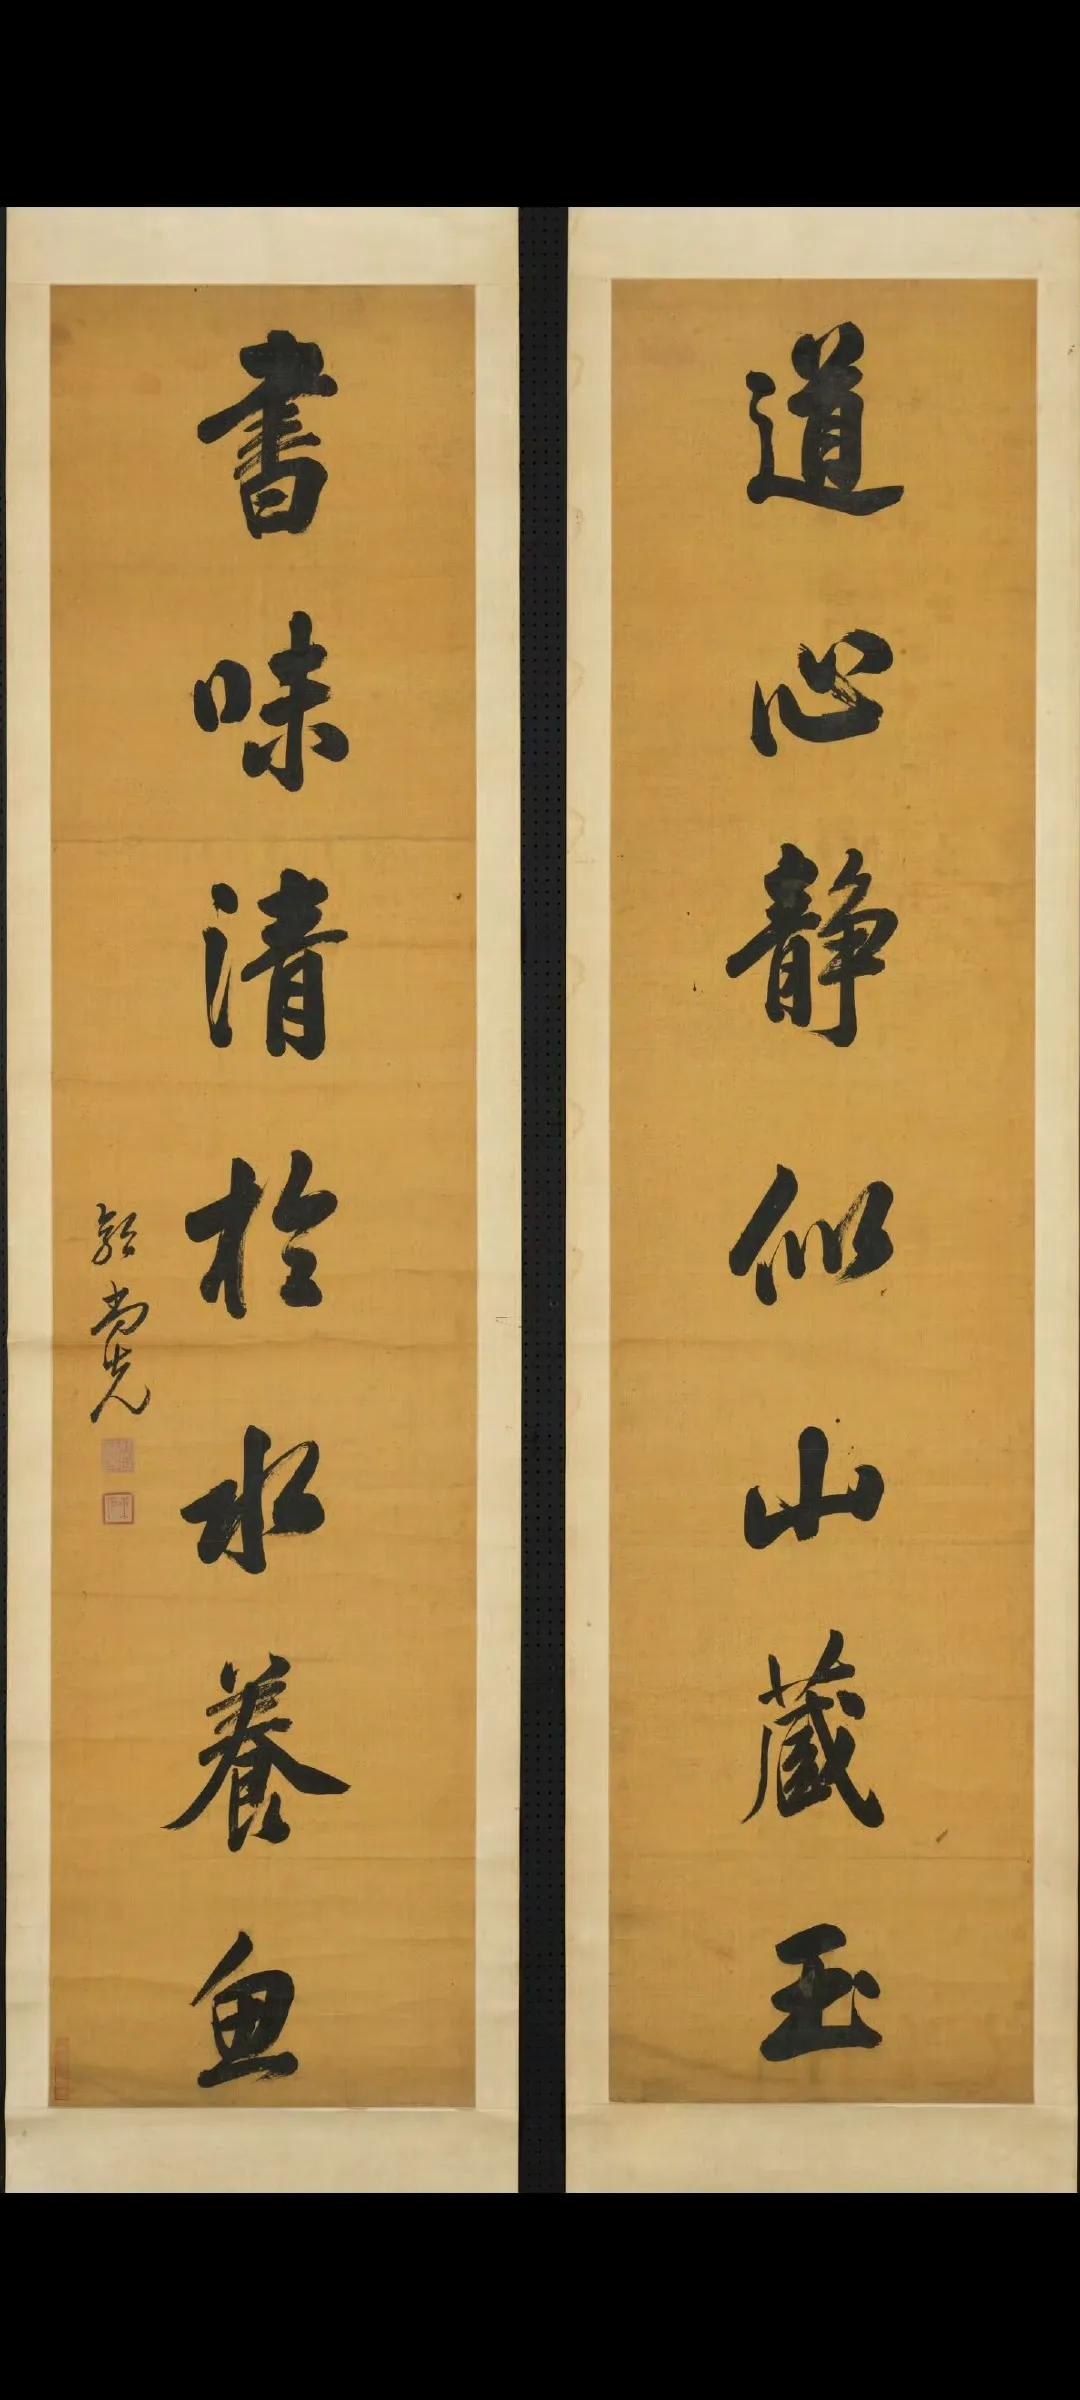 道心静似山藏玉
書味清於水養魚
郭尚先